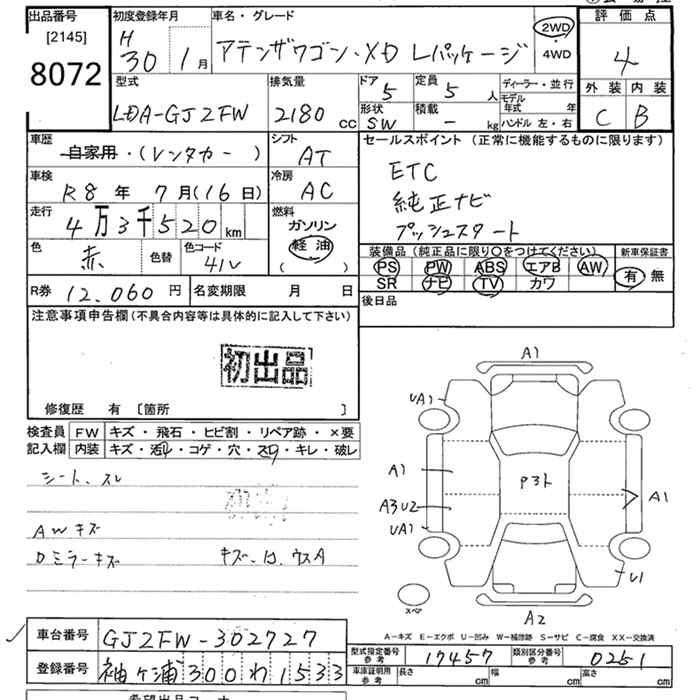 出品番号
[2145]
8072
初度登録年月
H
30 1月
車名・グレード
アテンザワゴン・XD Lパッケージ
2WD
4WD
評価点
4
外装 内装
C B
型式
LDA-GJ2FW
排気量
2180 cc
ドア
5
定員
5 人
形状
SW
積載
- kg
ディーラー・並行
モデル年式 年
ハンドル 左・右
車歴
自家用・(レンタカー)
シフト
AT
セールスポイント(正常に機能するものに限ります)
ETC
純正ナビ
プッシュスタート
車検
R8年 7月(16日)
冷房
AC
走行
4万3千520km
燃料
ガソリン
軽油
( )
色
赤
色替
色コード
41V
装備品(純正品に限り〇をつけてください) 新車保証書
PS PW ABS エアB AW 有 無
SR ナビ TV カワ
R券 12.060円
名変期限 月 日
後日品
注意事項申告欄(不具合内容等は具体的に記入して下さい)
初出品
修復歴 有 〔箇所 〕
検査員 FW キズ・飛石・ヒビ割・リペア跡・×要
記入欄 内装 キズ・汚レ・コゲ・穴・スレ・キレ・破レ
シート、スレ
AWキズ
Dミラーキズ キズ、凹、ウスA
A1
UA1
A1
A3U2
UA1
P3ト
A1
U1
スペア
A2
A-キズ E-エクボ U-凹み W-補修跡 S-サビ C-腐食 XX-交換済
車台番号 GJ2FW-302727
登録番号 袖ヶ浦300わ1533
型式指定番号 参考 17457
類別区分番号 参考 0251
車庫証明用 参考 長さ cm 幅 cm 高さ cm